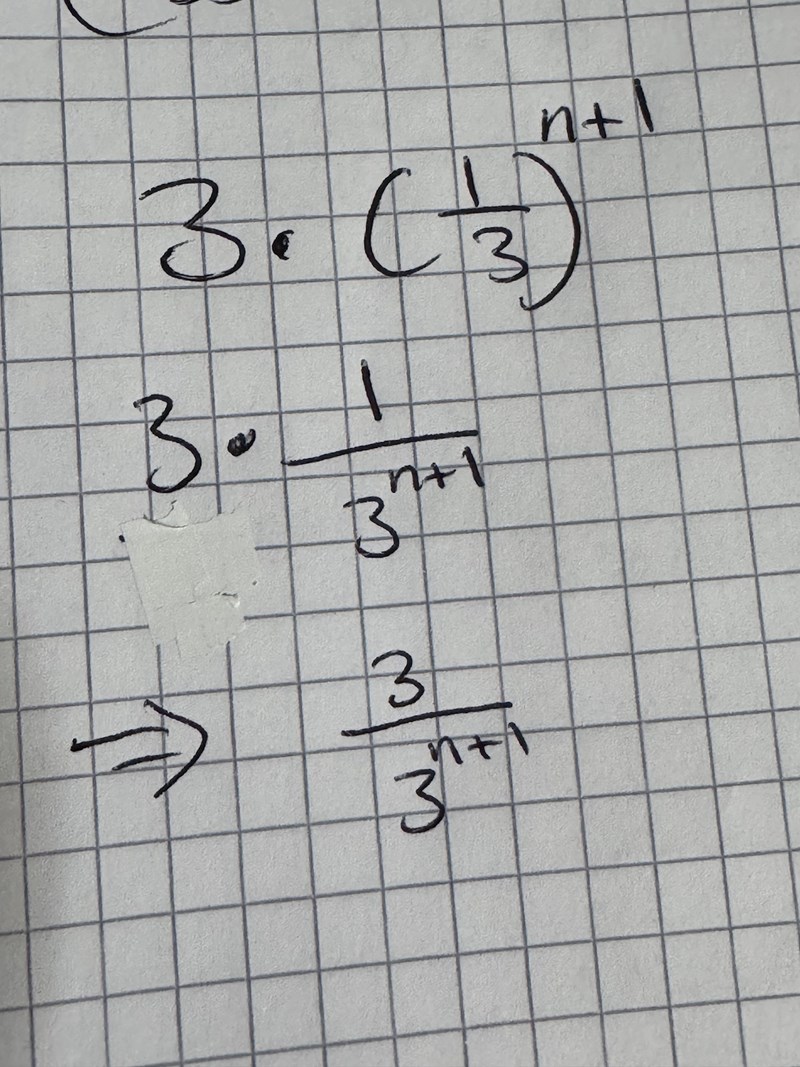 3 · (1/3)^(n+1)
3 · 1/3^(n+1)
⇒ 3/3^(n+1)